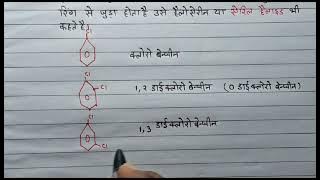 रिंग से जुड़ा होता है उसे हैलोएरीन या एरिल हैलाइड भी
कहते हैं
Cl
क्लोरो बेन्जीन
Cl
Cl
1, 2 डाई क्लोरो बेन्जीन (0 डाई क्लोरो बेन्जीन)
Cl
1, 3 डाई क्लोरो बेन्जीन
Cl